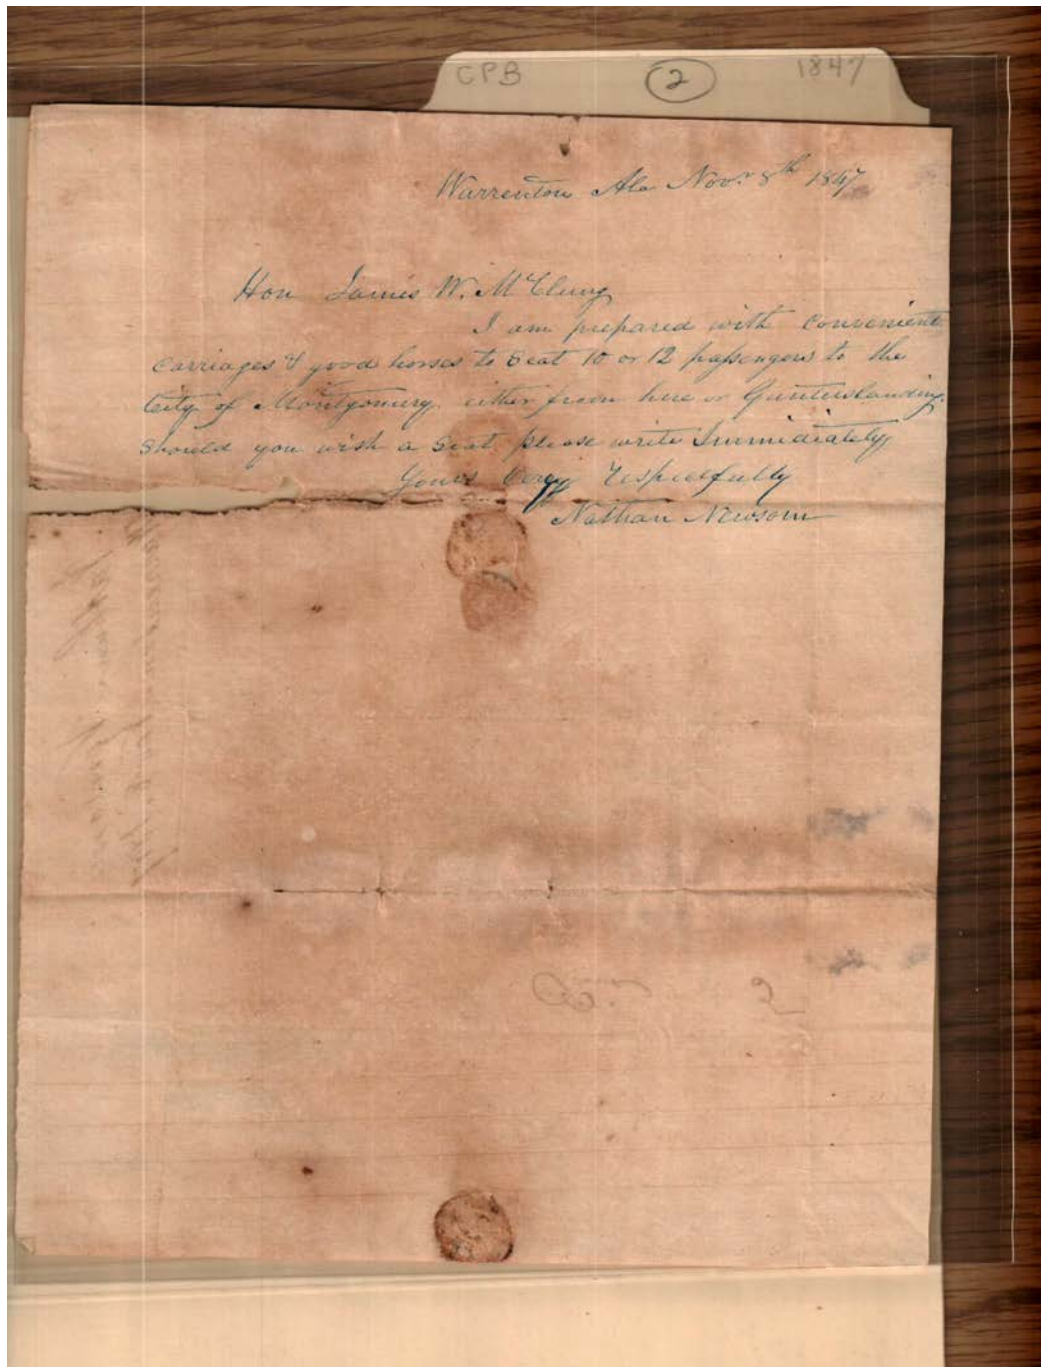 CPB 2 1847
Warrenton Ala Novr 8th 1847
Hon James W. McClung
I am prepared with Convenient
Carriages & good horses to Seat 10 or 12 passengers to the
City of Montgomery either from here or Gunterslanding.
Should you wish a Seat please write Immidiately
Yours Very Respectfully
Nathan Newsom